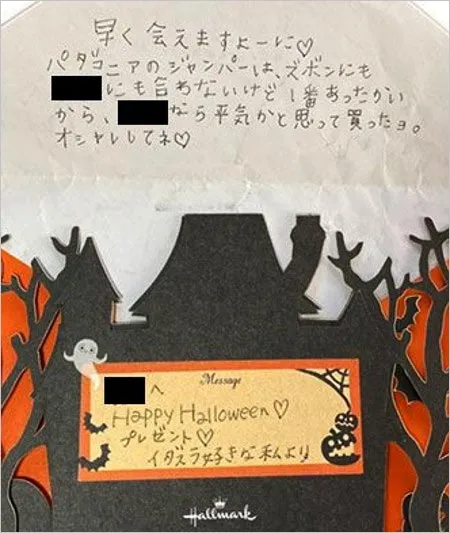 早く会えますよーに♡
パタゴニアのジャンパーは、ズボンにも
にも合わないけど1番あったかい
から、なら平気かと思って買ったョ。
オシャレしてネ♡
Message
へ
Happy Halloween♡
プレゼント♡
イタズラ好きな私より
Hallmark